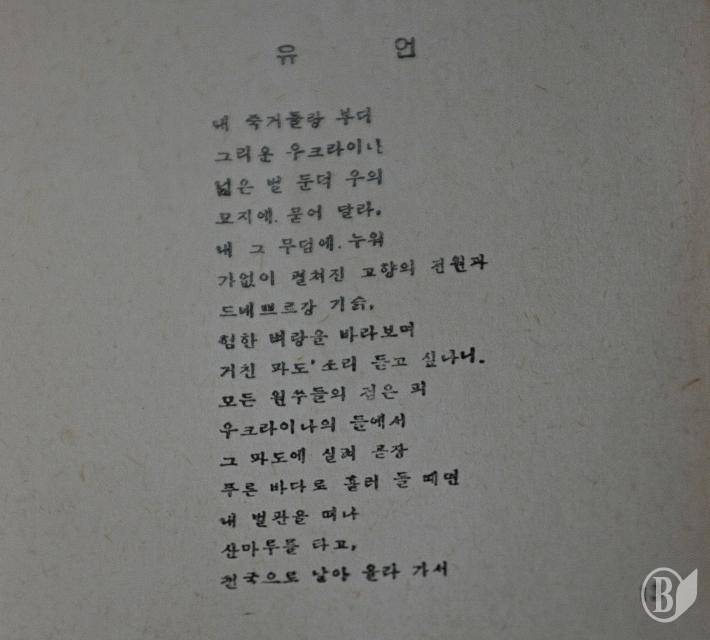 유 언
내 죽거들랑 부디
그리운 우크라이나
넓은 벌 둔덕 우의
묘지에 묻어 달라.
내 그 무덤에 누워
가없이 펼쳐진 고향의 전원과
드네쁘르강 기슭,
험한 벼랑을 바라보며
거친 파도'소리 듣고 싶나니.
모든 원쑤들의 검은 피
우크라이나의 들에서
그 파도에 실려 곧장
푸른 바다로 흘러 들 때면
내 벌판을 떠나
산마루를 타고,
천국으로 날아 올라 가서
B